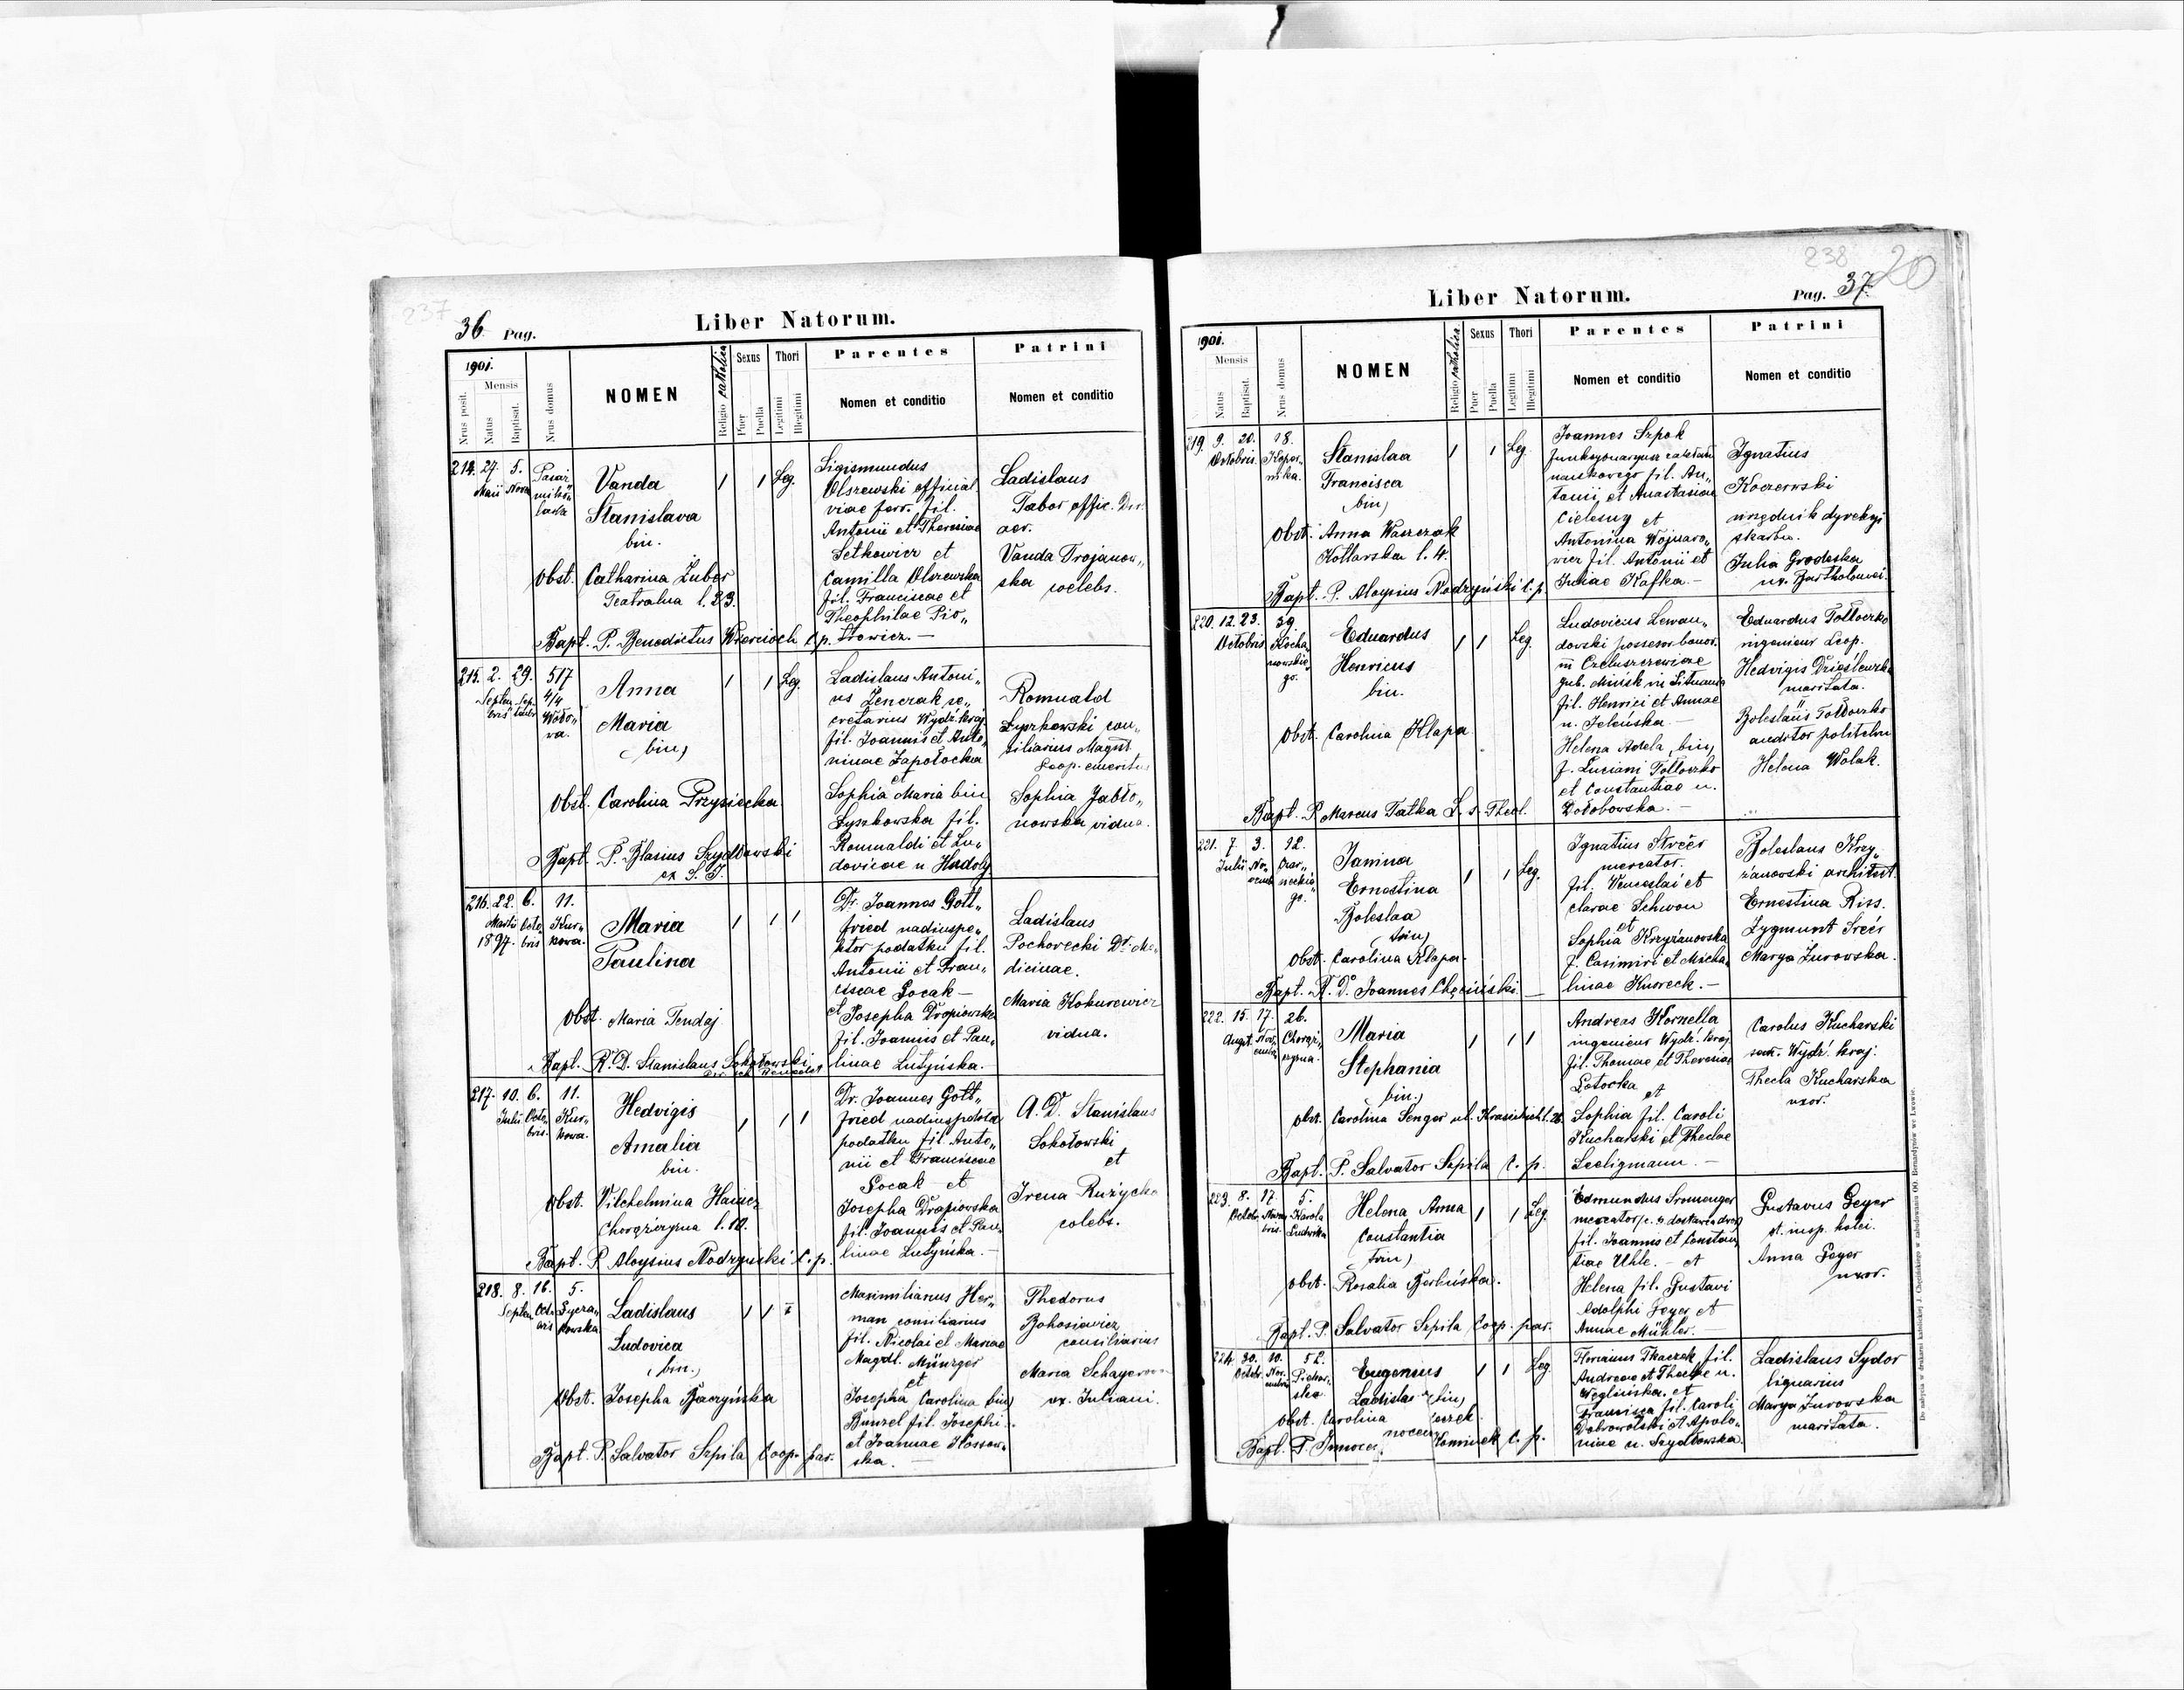 237
36 Pag.
Liber Natorum.
1901.
Mensis
Nrus posit.
Natus
Baptisat.
Nrus domus
NOMEN
Religio catholica
Sexus
Puer
Puella
Thori
Legitimi
Illegitimi
Parentes
Nomen et conditio
Patrini
Nomen et conditio
214. 27. 5.
Maii Novem
Vanda
Stanislava
bin.
1 1 Leg.
obst. Catharina Zuber
Teatralna l. 23.
Bapt. P. Benedictus Wiercioch C. p.
Sigismundus
Olszewski official.
viae ferr. fil.
Antonii et Theresiae
Setkowicz et
Camilla Olszewska
fil. Franciscae et
Theophilae Pio„
trowicz. —
Ladislaus
Tabor offic. Dir.
Vanda Trojanow„
ska coelebs.
215. 2. 29. 517
Septem Sep- 4/4
bris tembr Wóło„
wa.
Anna
Maria
bin)
1 1 Leg.
Obst. Carolina Przysiecka
Bapt. P. Blasius Szydłowski
ex S. J.
Ladislaus Antoni„
us Zenczak se„
cretarius Wydz. kraj.
fil. Joannis et Anto„
ninae Zapołocka
et
Sophia Maria bin
Łyszkowska fil.
Romualdi et Lu„
dovicae n Hadoly
Romuald
Łyszkowski con„
siliarius Magist.
Leop. emeritus
Sophia Jabło„
nowska vidua.
216. 22. 6. 11.
Martii Octo Kur„
1897. bris kowa.
Maria
Paulina
1 1 1
obst. Maria Tendaj
Bapt. R. D. Stanislaus Sokołowski
Dr. Joannes Gott„
fried nadinspe„
ktor podatku fil.
Antonii et Fran„
ciscae Socak —
et Josepha Drapiowska
fil. Joannis et Pau„
linae Lutyńska.
Ladislaus
Pochorecki Dr. Me„
dicinae.
Maria Kokurewicz
vidua.
217. 10. 6. 11.
Julii Octo„ Kur„
bris. kowa.
Hedvigis
Amalia
bin.
1 1 1
obst. Vilchelmina
Chorążczyzna l. 10.
Bapt. P. Aloysius Nodzyński C. p.
Dr. Joannes Gott„
fried nadinspektor
podatku fil. Anto„
nii et Franciscae
Socak — et
Josepha Drapiowska
fil. Joannis et Pau„
linae Lutyńska. —
R. D. Stanislaus
Sokołowski
et
Irena Rużycka
colebs.
218. 8. 16. 5.
Septem Octo Łycza„
bris kowska
Ladislaus
Ludovica
(bin.)
1 1 1
Obst. Josepha Baczyńska
Bapt. P. Salvator Szpila Coop. par.
Maximilianus Her„
man consiliarius
fil. Nicolai et Mariae
Magdl. Münzger
et
Josepha Carolina bin)
Bunzel fil. Josephi
et Joannae Kossow„
ska. —
Thedorus
Bohosiewicz
consiliarius
Maria Schayerowa
ux. Juliani.
238
20
Liber Natorum.
Pag. 37.
1901.
Mensis
Natus
Baptisat.
Nrus domus
NOMEN
Religio catholica
Sexus
Puer
Puella
Thori
Legitimi
Illegitimi
Parentes
Nomen et conditio
Patrini
Nomen et conditio
219. 9. 20. 18.
Octobris. Koper„
nika.
Stanislaa
Francisca
bin)
1 1 Leg.
obst. Anna Waszczak
Kotlarska l. 4.
Bapt. P. Aloysius Nodzyński C. p.
Joannes Szpak
fil. An„
tonii et Anastasiae
Cielesny et
Antonina Wojnaro„
wicz fil. Antonii et
Juliae Kafka. —
Ignatius
Koczerwski
urzędnik dyrekcyi
skarbu.
Julia Grodeska
ux. Bartholomei.
220. 12. 23. 39.
Octobris Kocha
nowskie„
go.
Eduardus
Henricus
bin.
1 1 Leg.
obst. Carolina Klapa
Bapt. P. Marcus Fatka L. s. Theol.
Ludovicus Lewan„
dowski possesor bonor.
in
gub. Mińsk in Lituania
fil. Henrici et Annae
n. Jeleńska. —
Helena Adela, bin)
f. Luciani Tołłoczko
et Constantiae n.
Dołobowska. —
Eduardus Tołłoczko
ingenieur Leop.
Hedvigis
maritata.
Boleslaus Tołłoczko
auditor politechn
Helena Wolak.
221. 7. 3. 12.
Julii No„ Czar„
vemb nieckie„
go.
Janina
Ernestina
Boleslaa
trin)
1 1 Leg.
obst. Carolina Klapa.
Bapt. R. D. Joannes Chęciński. —
Ignatius Srećer
mercator.
fil. Venceslai et
clarae Schwon
et
Sophia Krzyżanowska
f. Casimiri et Micha„
linae Kusreck. —
Boleslaus Krzy„
żanowski architect.
Ernestina Riss.
Zygmunt Srećer
Marya Żurowska.
222. 15. 17. 26.
Augst. Nov„ Chorąż„
embr czyzna.
Maria
Stephania
bin.)
1 1 1
obst. Carolina Senger ul. Krasickich l. 26.
Bapt. P. Salvator Szpila C. p.
Andreas Kornella
ingenieur Wydz. kraj.
fil. Thomae et Theresiae
Lotocka
et
Sophia fil. Caroli
Kucharski et Theclae
Seeligmann. —
Carolus Kucharski
Wydz. kraj.
Thecla Kucharska
uxor.
223. 8. 17. 5.
Octobr. Novem Karola
bris. Ludwika
Helena Anna
Constantia
trin)
1 1 Leg.
obst. Rosalia Berlińska.
Bapt. P. Salvator Szpila Coop. par.
Edmundus
mercator
fil. Joannis et Constan„
tiae Uhle. — et
Helena fil. Gustavi
Adolphi Geyer et
Annae Mühler. —
Gustavus Geyer
st. insp. kolei.
Anna Geyer
uxor.
224. 30. 10. 52.
Octobr. Nov. Piekar„
embr ska
Eugenius
Ladislaus (bin)
1 1 Leg.
obst. Carolina
Bapt. P. Kominek C. p.
Florianus Tkaczek fil.
Andreae et Theclae n.
Węglińska. et
Francisca fil. Caroli
Dobrowolski et Apolo„
niae n. Szydłowska.
Ladislaus Sydor
lignarius
Marya Żurowska
maritata.
Do nabycia w drukarni katolickiej J. Chęcińskiego w zabudowaniu OO. Bernardynów we Lwowie.